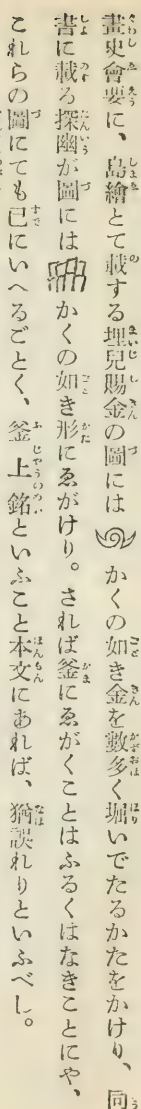 畫史會要に、島繪とて載する埋兒賜金の圖には かくの如き金を數多く堀いでたるかたをかけり、同
書に載る探幽が圖には かくの如き形にゑがけり。されば釜にゑがくことはふるくはなきことにや、
これらの圖にても已にいへるごとく、釜上銘といふこと本文にあれば、猶誤れりといふべし。